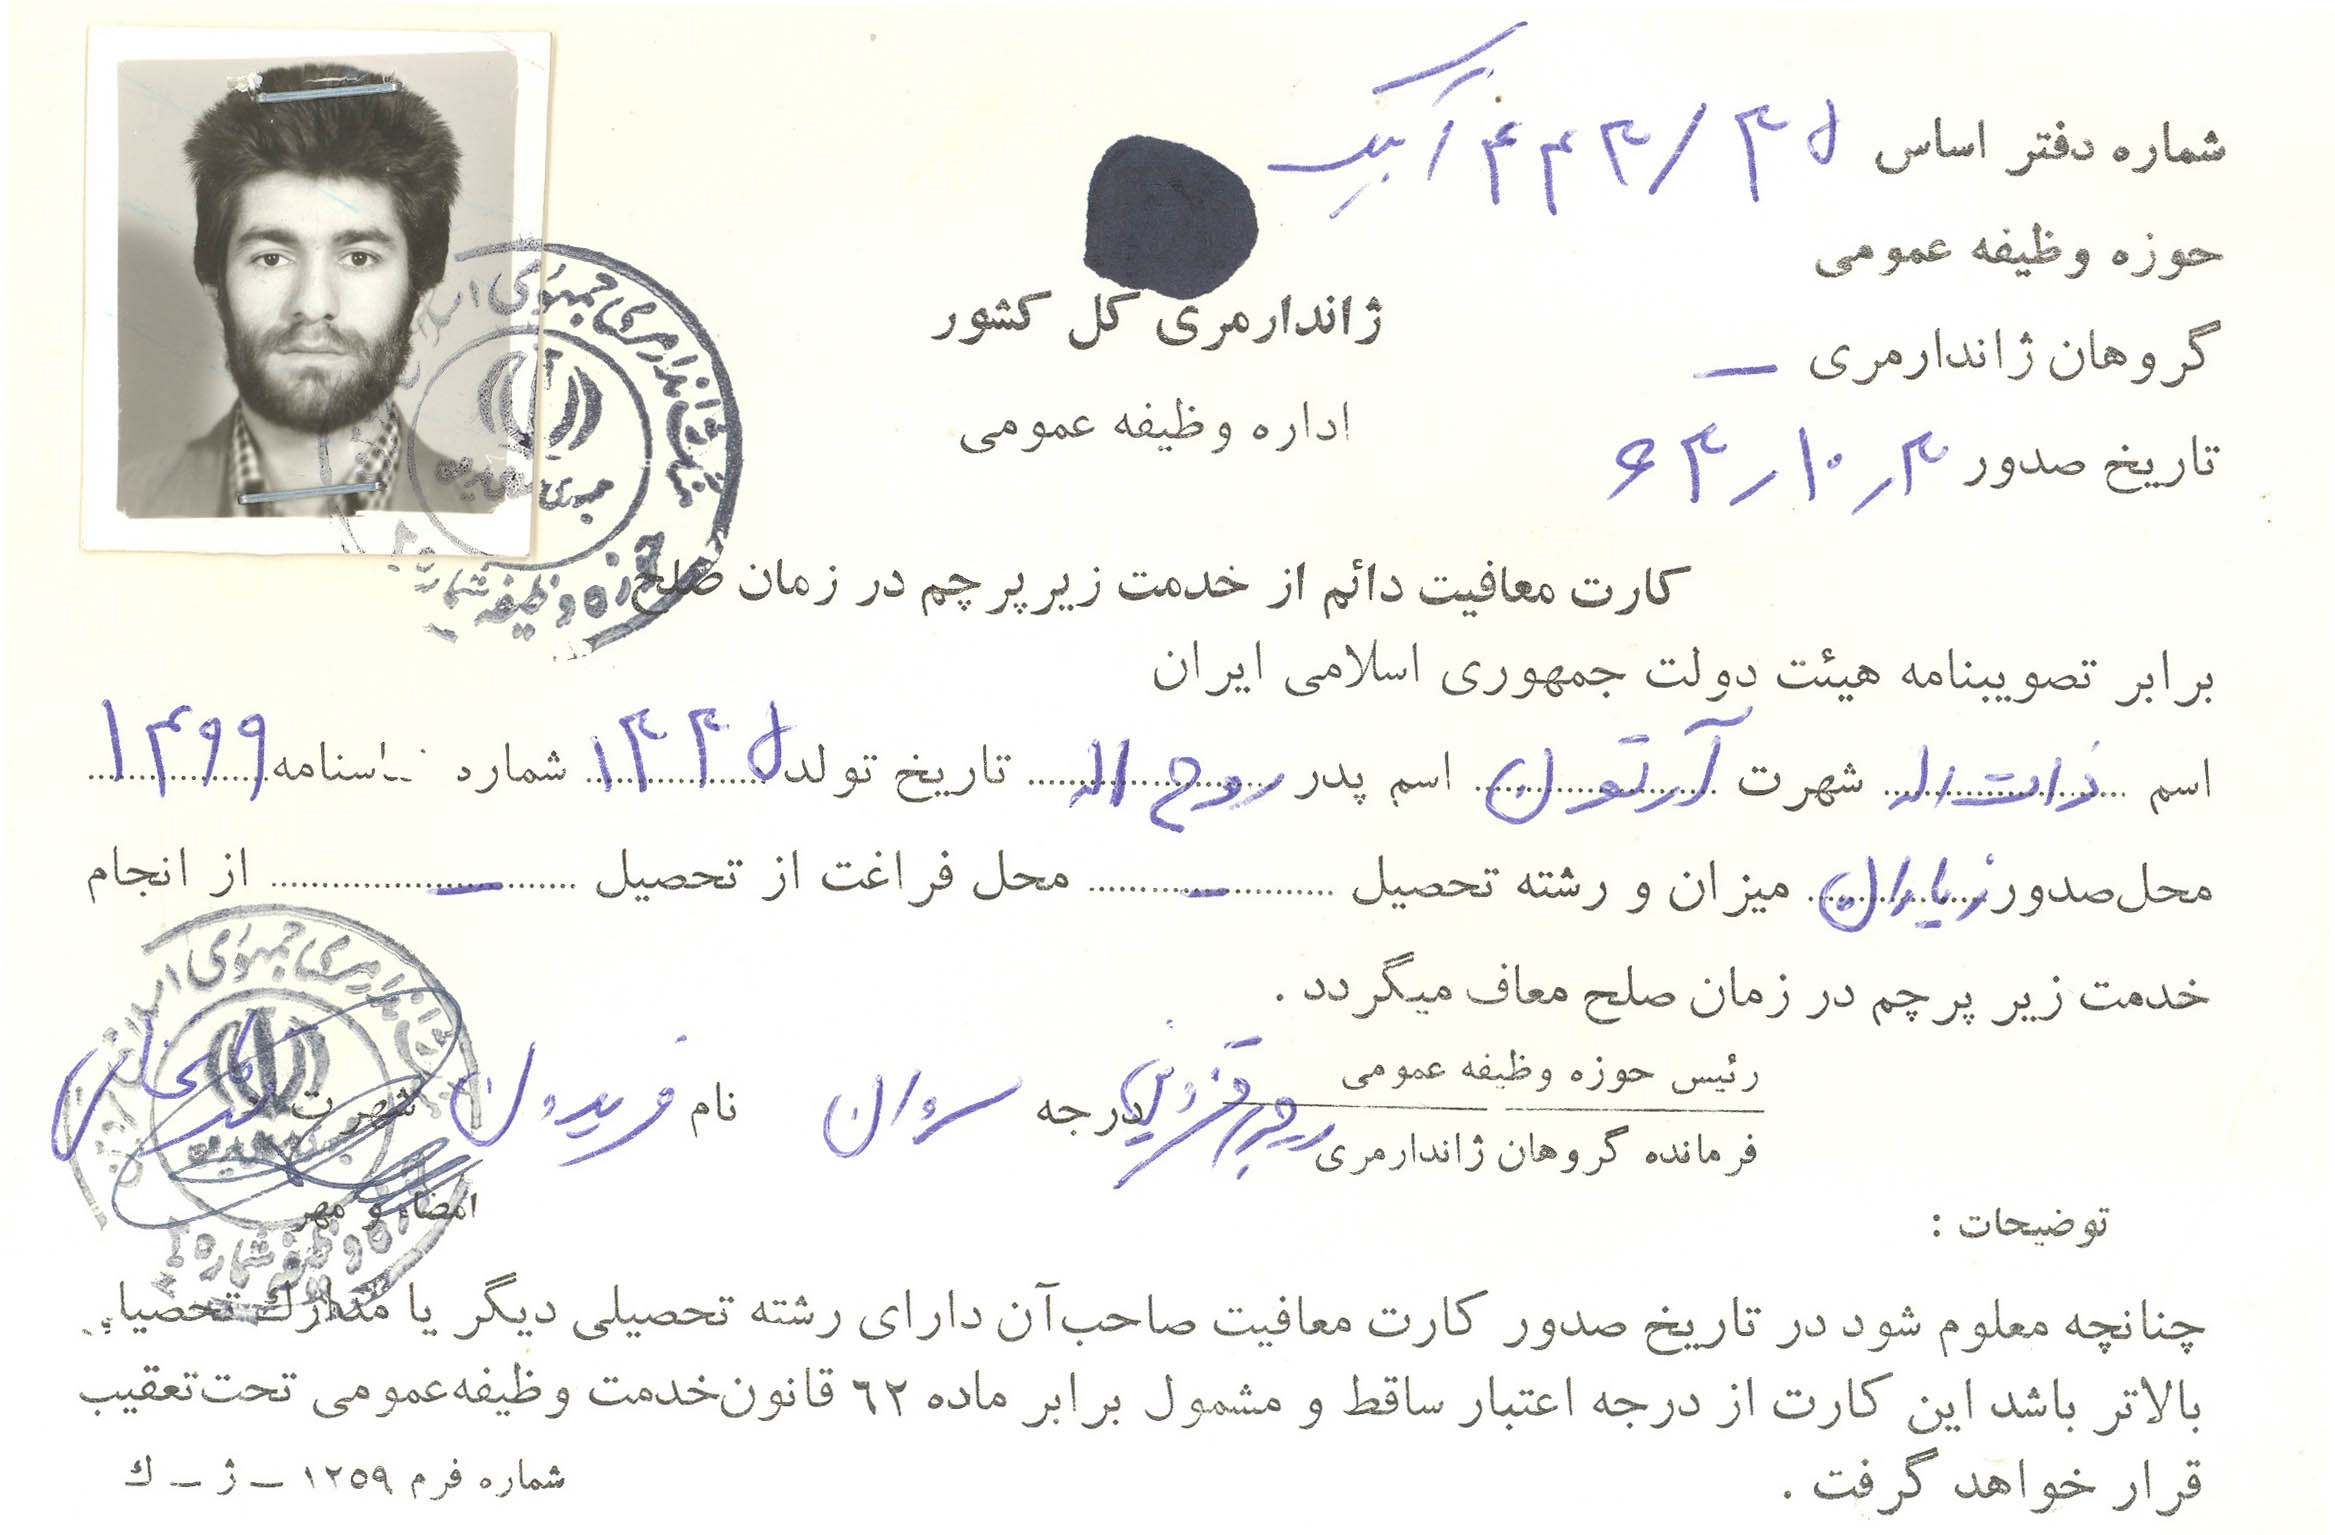 شماره دفتر اساس ۳۵ / ۴۴۳
حوزه وظیفه عمومی
گروهان ژاندارمری —
تاریخ صدور ۳-۱۰-۶۳
ژاندارمری کل کشور
اداره وظیفه عمومی
کارت معافیت دائم از خدمت زیر پرچم در زمان صلح
برابر تصویبنامه هیئت دولت جمهوری اسلامی ایران
اسم ذات اله شهرت آرتون اسم پدر روح اله تاریخ تولد ۱۳۳۵ شماره شناسنامه ۱۴۹۹
محل صدور زیاران میزان و رشته تحصیل — محل فراغت از تحصیل — از انجام
خدمت زیر پرچم در زمان صلح معاف میگردد .
رئیس حوزه وظیفه عمومی
فرمانده گروهان ژاندارمری قزوین درجه سروان نام فریدون شهرت
امضاء و مهر
توضیحات :
چنانچه معلوم شود در تاریخ صدور کارت معافیت صاحب آن دارای رشته تحصیلی دیگر یا مدارك تحصیلی
بالاتر باشد این کارت از درجه اعتبار ساقط و مشمول برابر ماده ٦٢ قانون خدمت وظیفه عمومی تحت تعقیب
قرار خواهد گرفت .
شماره فرم ١٢٥٩ – ژ – ك